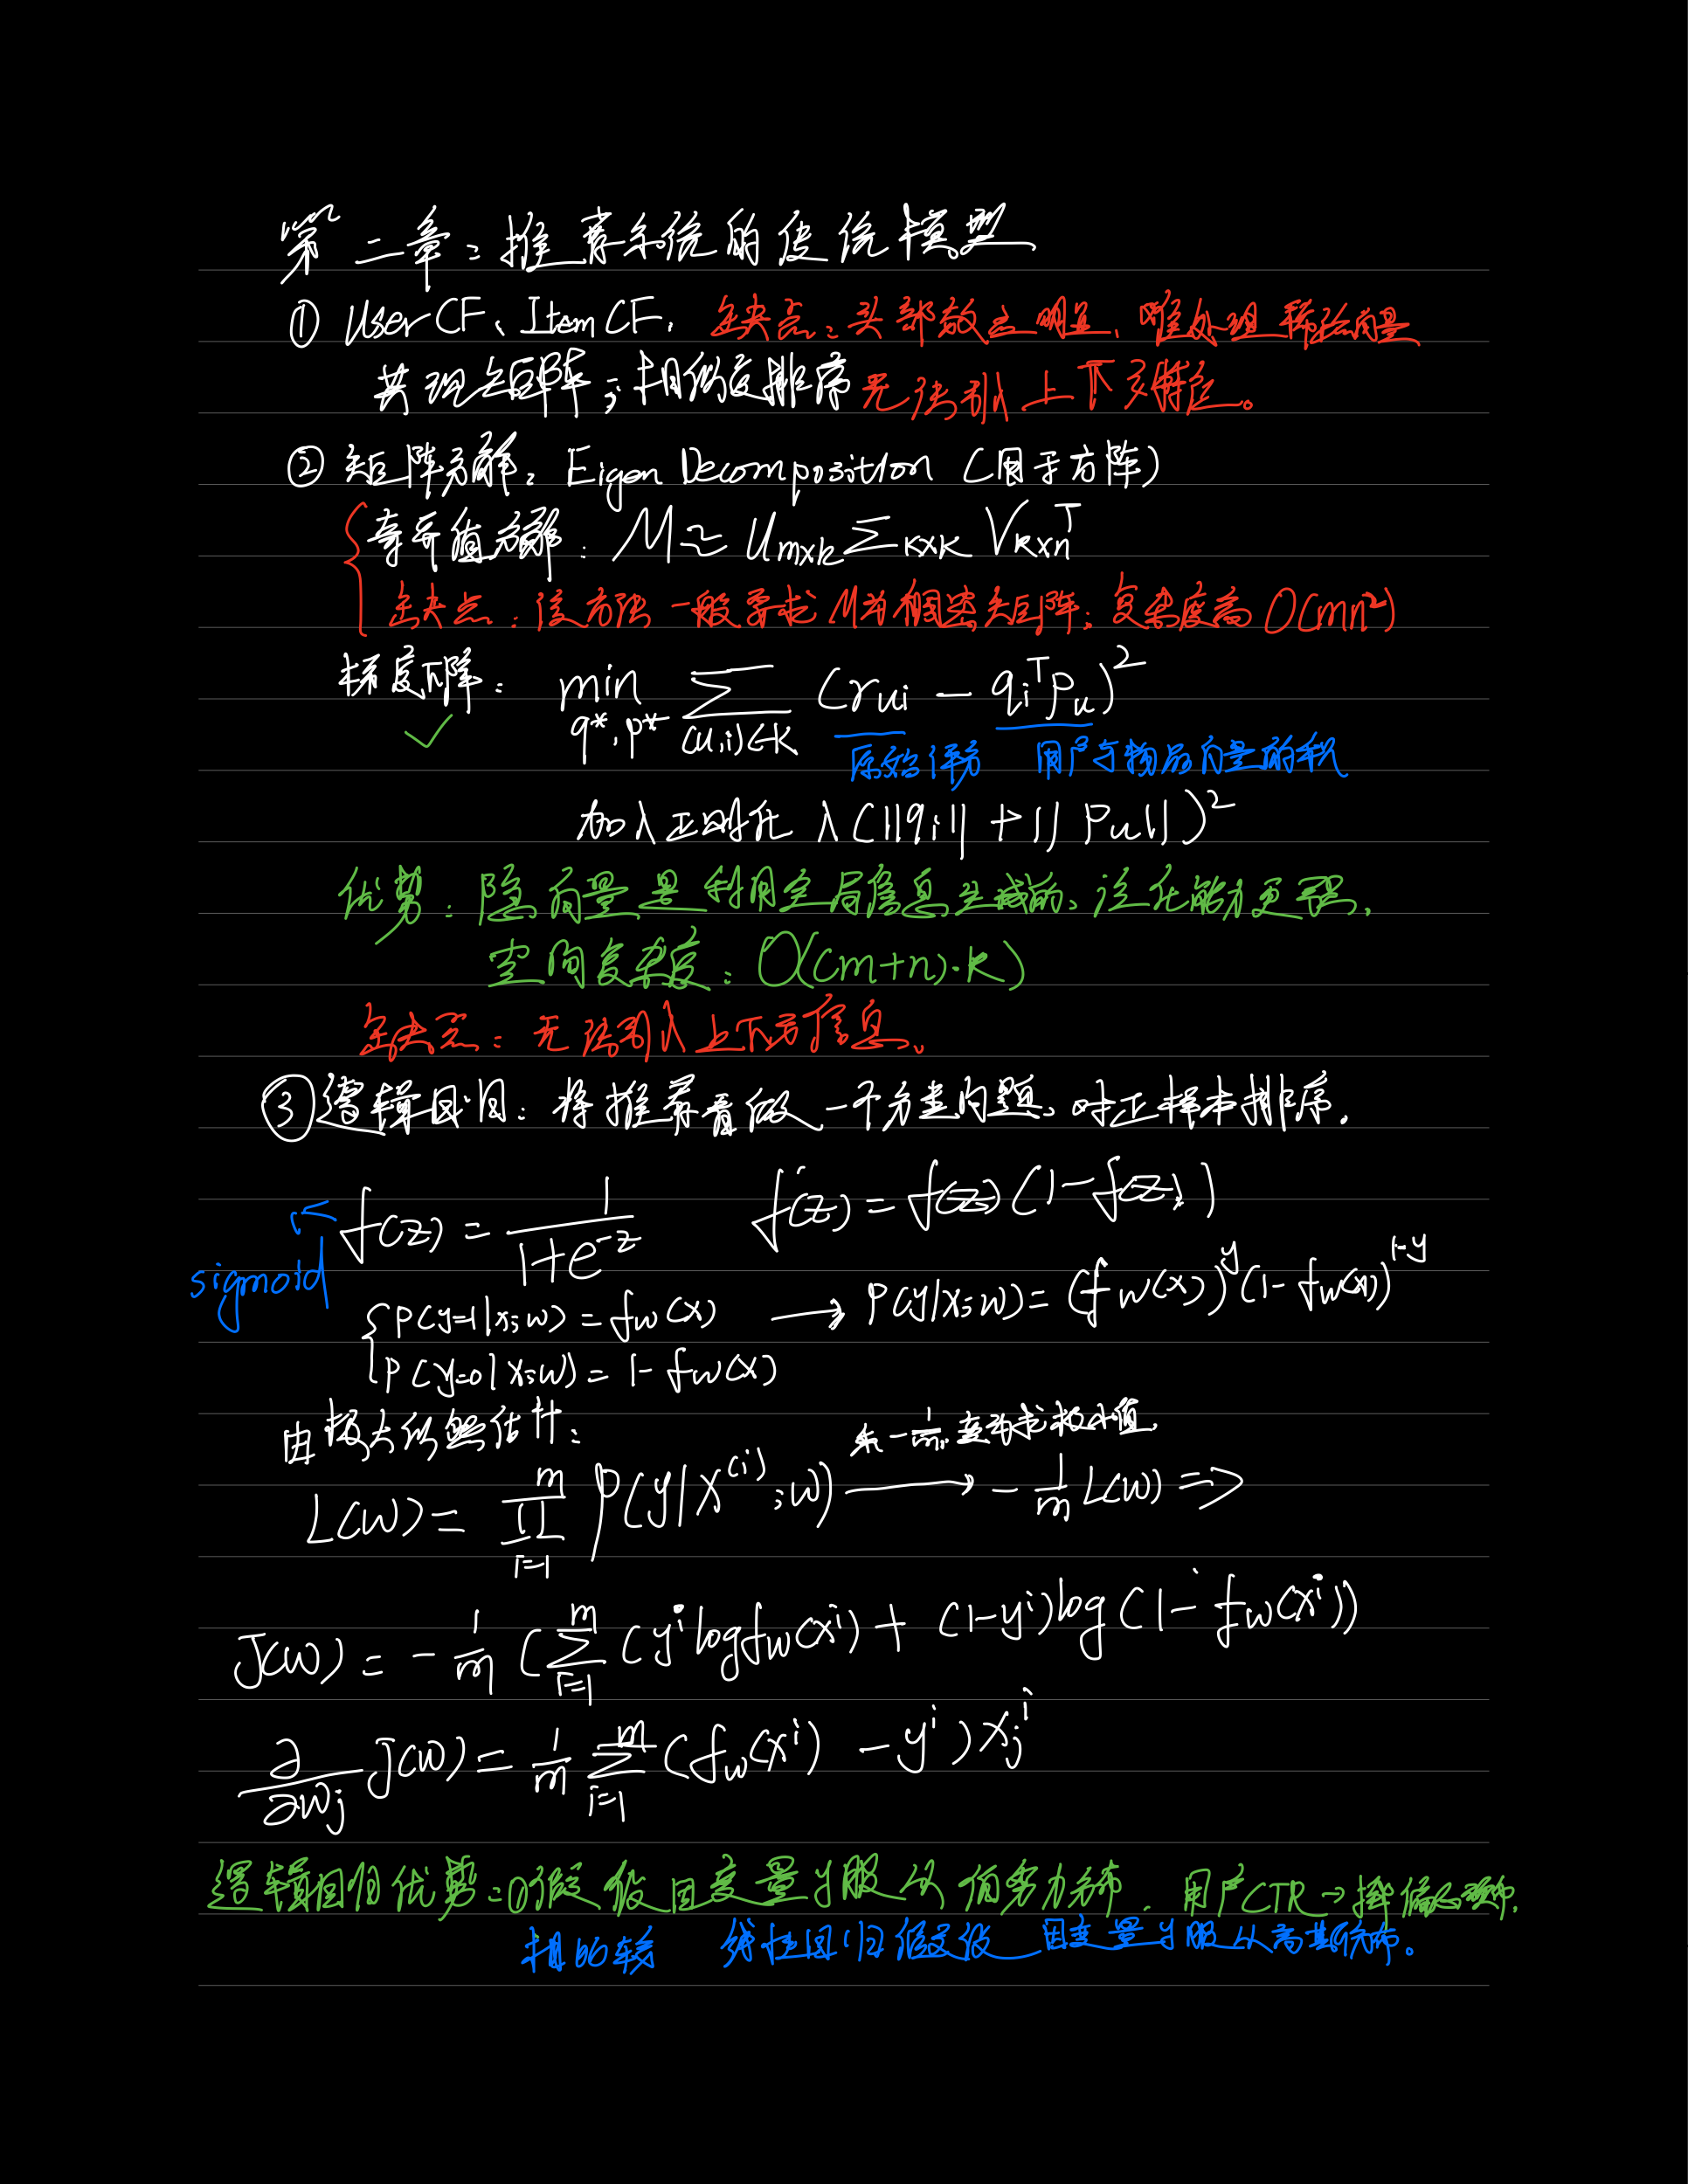 第二章：推荐系统的传统模型
① UserCF、ItemCF, 缺点：头部效应明显，难处理稀疏向量
共现矩阵；相似度排序 无法引入上下文特征。
② 矩阵分解：Eigen Decomposition (用于方阵)
奇异值分解：M ≈ U_{m×k} Σ_{k×k} V_{k×n}^T
缺点：该方法一般要求M为稠密矩阵；复杂度高 O(mn²)
梯度下降： min_{q*,p*} Σ_{(u,i)∈K} (r_{ui} − q_i^T p_u)²
✓ 原始评分 用户与物品向量的积
加入正则化 λ(||q_i|| + ||p_u||)²
优势：隐向量是利用全局信息生成的，泛化能力更强，
空间复杂度：O((m+n)·k)
缺点：无法引入上下文信息。
③ 逻辑回归：将推荐看做一个分类问题，对正样本排序.
f(z) = 1/(1+e^{-z}) f'(z) = f(z)(1−f(z))
sigmoid
{ P(y=1|x;w) = f_w(x) → P(y|x;w) = (f_w(x))^y (1−f_w(x))^{1−y}
P(y=0|x;w) = 1− f_w(x)
由极大似然估计： 乘 −1/m, 变为求极小值,
L(w) = ∏_{i=1}^{m} P(y|x^{(i)};w) → −1/m L(w) ⇒
J(w) = −1/m (Σ_{i=1}^{m} (y^i log f_w(x^i) + (1−y^i) log (1− f_w(x^i))
∂/∂w_j J(w) = 1/m Σ_{i=1}^{m} (f_w(x^i) − y^i) x_j^i
逻辑回归优势：①假设因变量y服从伯努力分布. 用户CTR→掷偏心硬币.
相比较 线性回归假设 因变量y服从高斯分布。